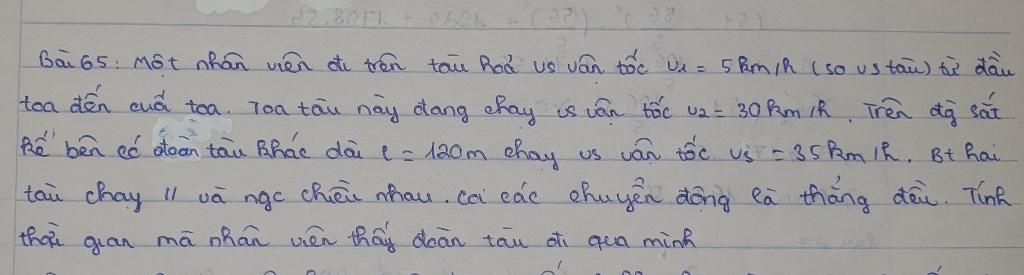 Bài 65: Một nhân viên đi trên tàu hoả vs vận tốc v₁ = 5km/h (so vs tàu) từ đầu
toa đến cuối toa. Toa tàu này đang chạy vs vận tốc v₂ = 30km/h. Trên đg sắt
kế bên có đoàn tàu khác dài l = 120m chạy vs vận tốc v₃ = 35km/h. Bt hai
tàu chạy // và ngc chiều nhau. Coi các chuyển động là thẳng đều. Tính
thời gian mà nhân viên thấy đoàn tàu đi qua mình